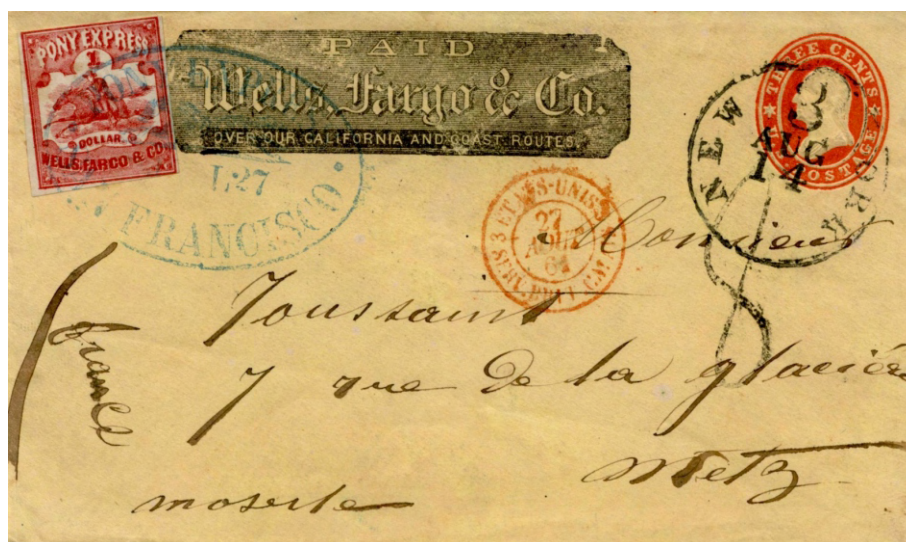 PONY EXPRESS
1
DOLLAR.
WELLS, FARGO & CO.
PAID
Wells, Fargo & Co.
OVER OUR CALIFORNIA AND COAST ROUTES.
THREE CENTS
U.S. POSTAGE
NEW YORK
3
AUG
14
L27
FRANCISCO
3 ETATS-UNIS
27
AOUT
61
8
Monsieur
Toussaint
7 rue de la glacière
Metz
moselle
france